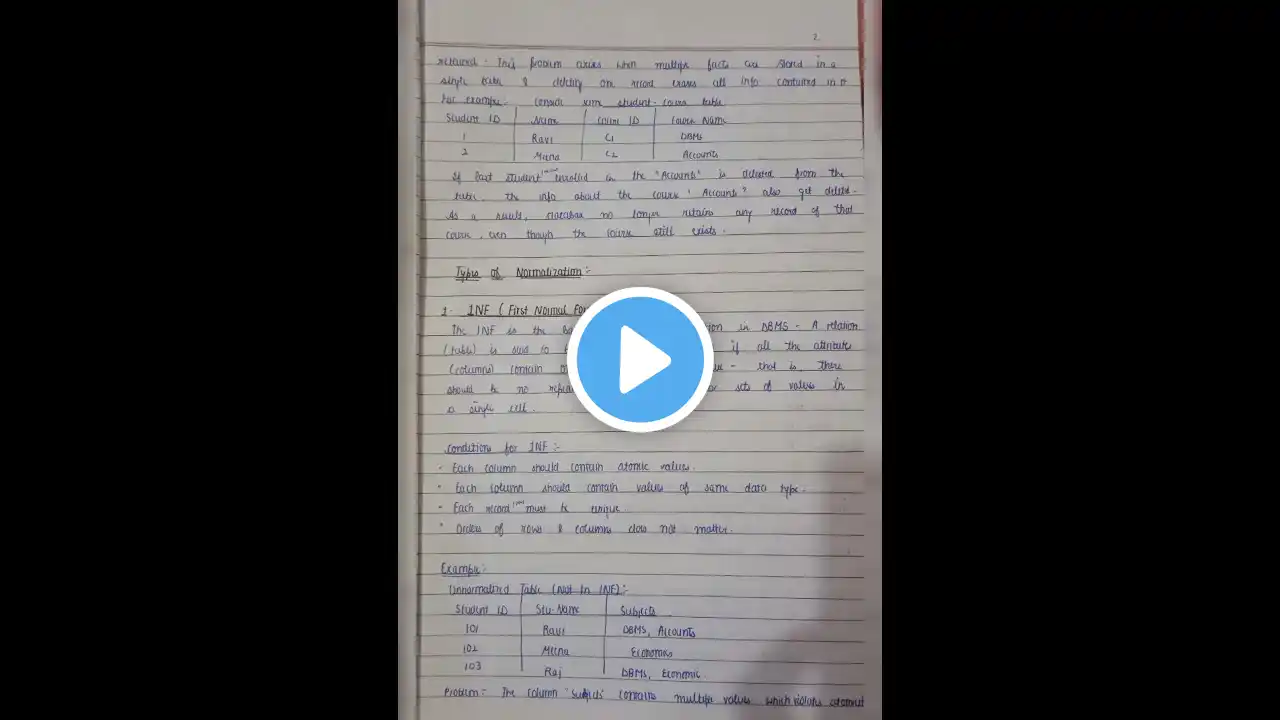 2
retained. This problem arises when multiple facts are stored in a
single table & deleting one record erases all info contained in it
For example:- Consider some student-course table
Student ID Name Course ID Course Name
1 Ravi C1 DBMS
2 Meena C2 Accounts
If last student enrolled in the "Accounts" is deleted from the
table, the info about the course 'Accounts' also get deleted.
As a result, database no longer retains any record of that
course, even though the course still exists.
Types of Normalization:-
1. 1NF (First Normal
The 1NF is the in DBMS. A relation
(table) is said to if all the attributes
(columns) contain - that is, there
should be no sets of values in
a single cell.
Conditions for 1NF:-
· Each column should contain atomic values.
· Each column should contain values of same data type.
· Each record must be unique.
· Orders of rows & columns does not matter.
Example:-
Unnormalized Table (Not In 1NF):-
Student ID Stu-Name Subjects
101 Ravi DBMS, Accounts
102 Meena Economics
103 Raj DBMS, Economic
Problem:- The column 'Subjects' contains multiple values which violates